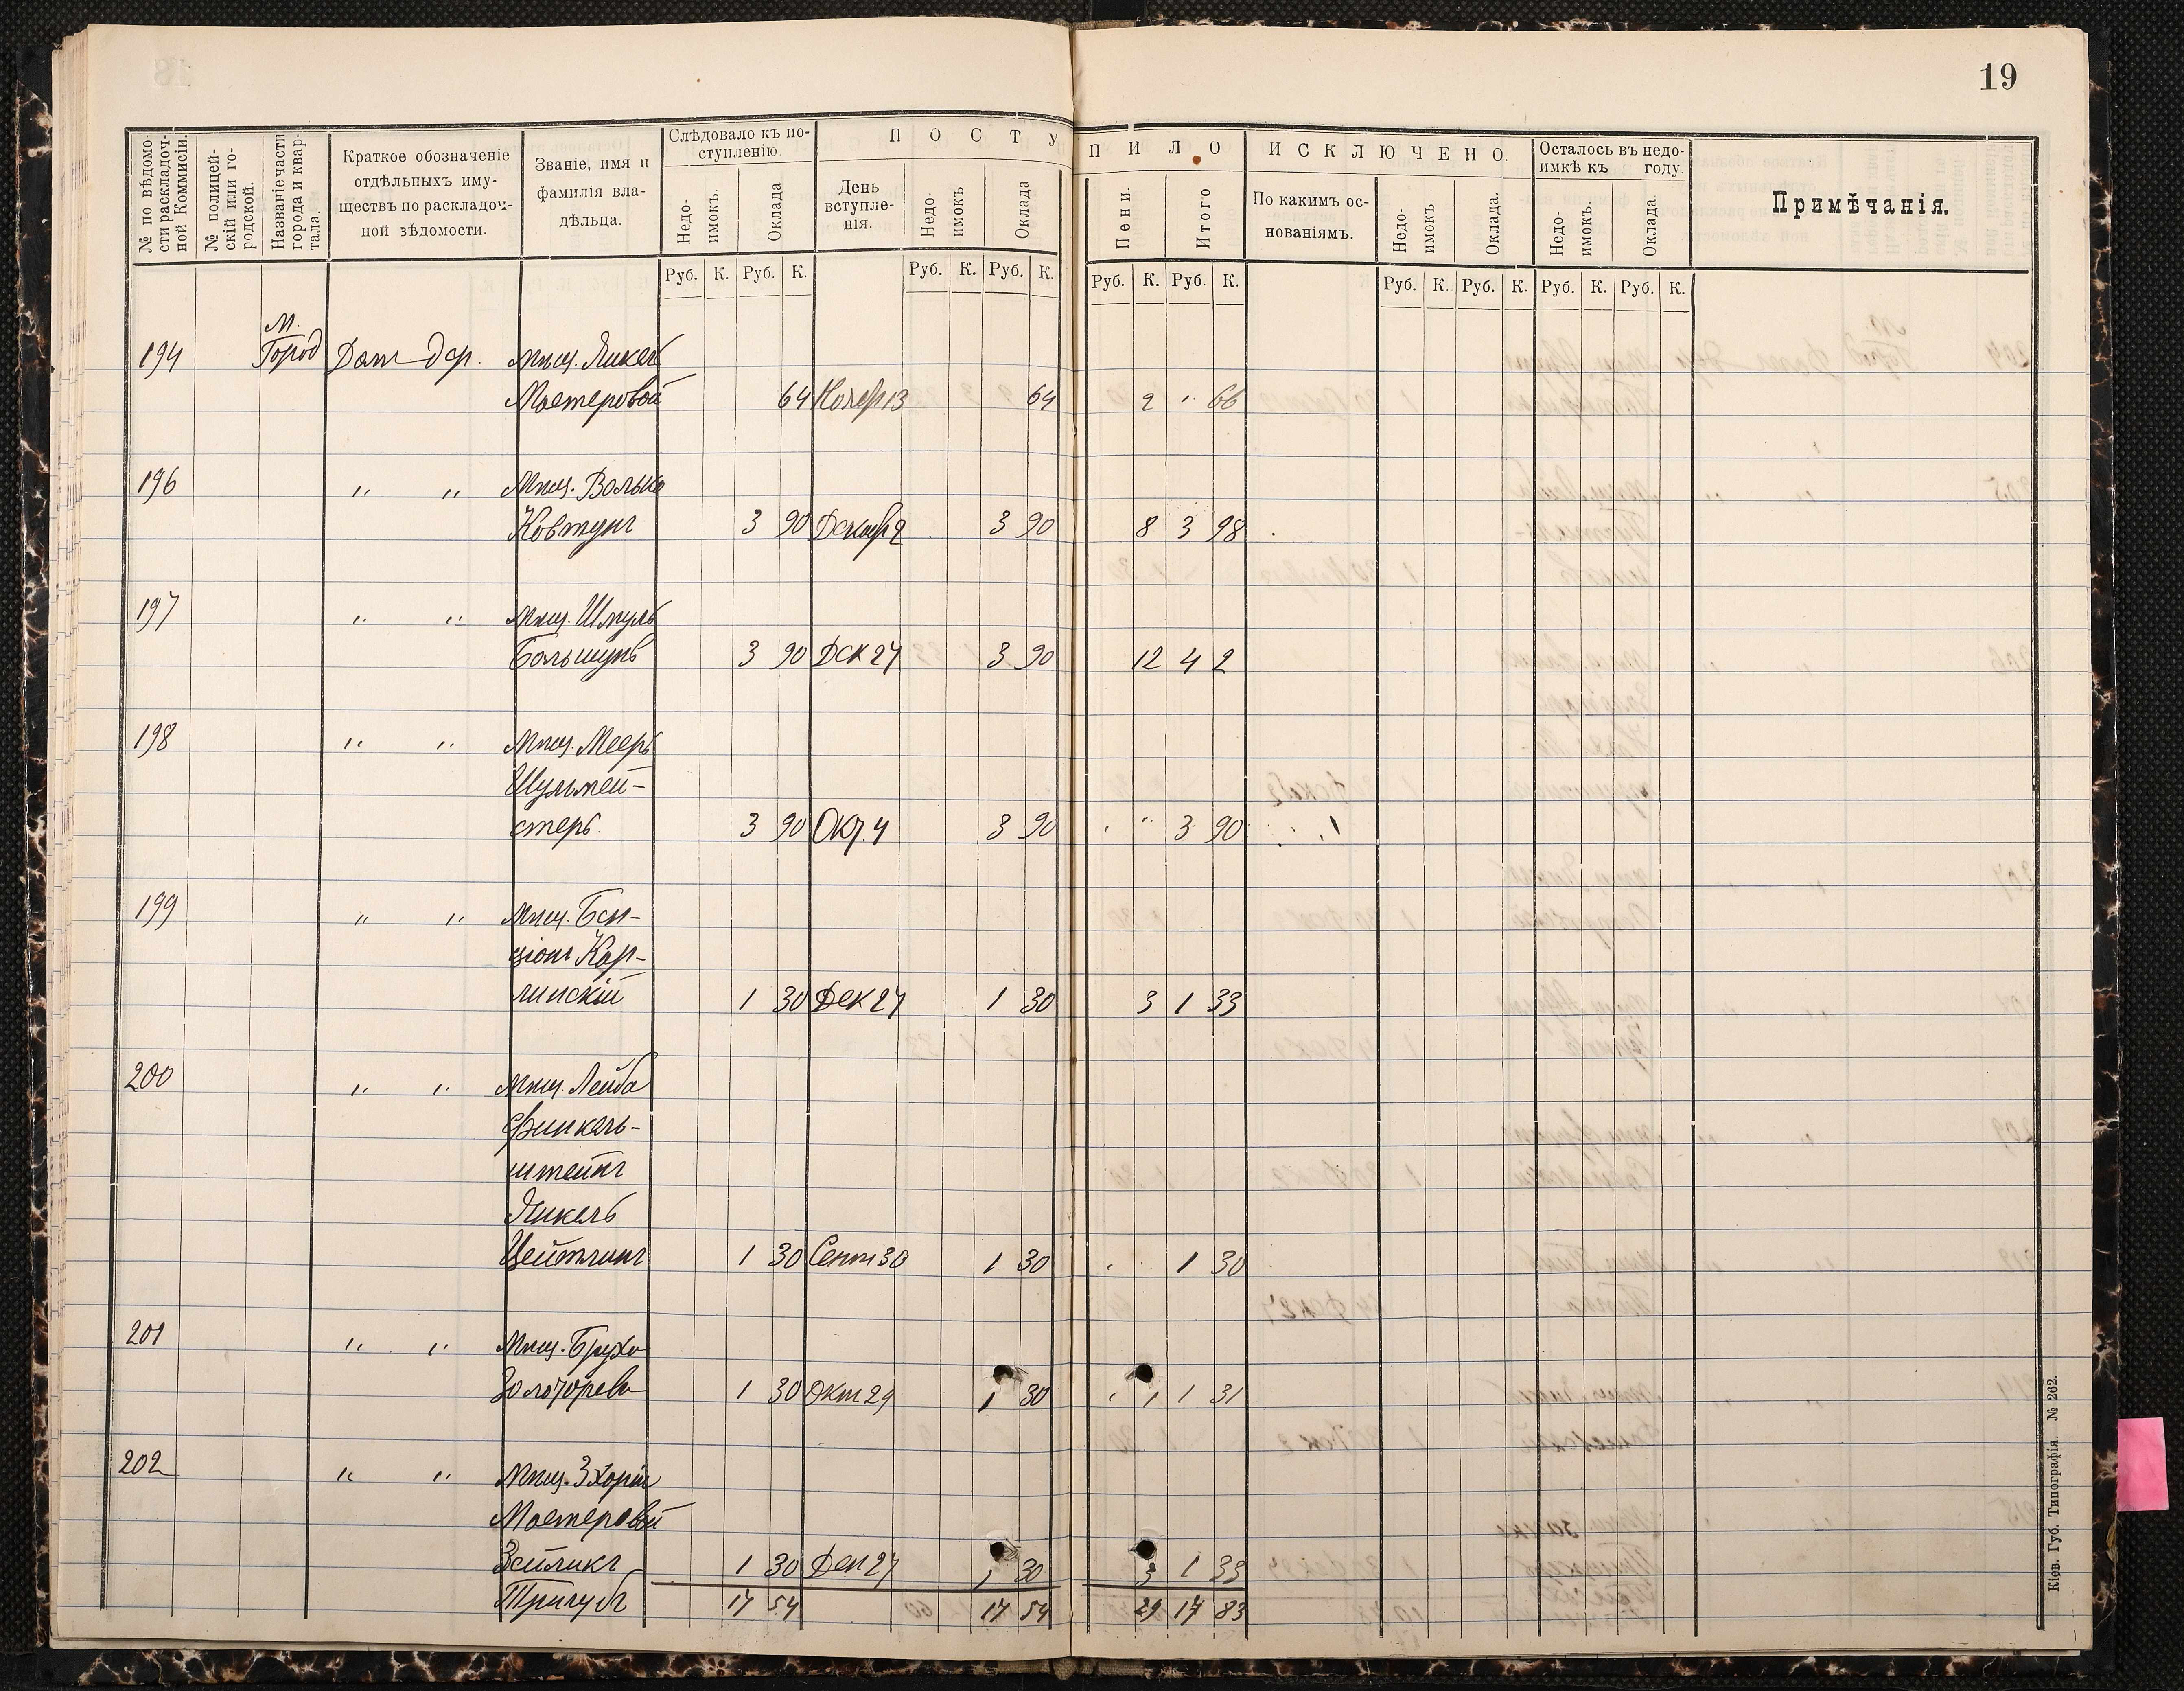 19
№ по вѣдомости раскладочной Коммисіи.
№ полицейскій или городской.
Названіе части города и квартала.
Краткое обозначеніе
отдѣльныхъ иму-
ществъ по раскладоч-
ной вѣдомости.
Званіе, имя и
фамилія вла-
дѣльца.
Слѣдовало къ по-
ступленію
Недо-
имокъ.
Оклада
П О С Т У П И Л О
День
вступле-
нія.
Недо-
имокъ
Оклада
Пени.
Итого
ИСКЛЮЧЕНО.
По какимъ ос-
нованіямъ.
Недо-
имокъ
Оклада.
Осталось въ недо-
имкѣ къ году.
Недо-
имокъ.
Оклада.
Примѣчанія.
Руб. К. Руб. К. Руб. К. Руб. К. Руб. К. Руб. К. Руб. К. Руб. К. Руб. К. Руб. К.
М.
194 Город Дом дер. Мѣщ. Янкель
Мастеровой 64 Ноябр 13 64 2 " 66
196 " " Мѣщ. Волько
Ковтунъ 3 90 Декабр 2 3 90 8 3 98
197 " " Мѣщ. Шмуль
Большунъ 3 90 Дек 27 3 90 12 4 2
198 " " Мѣщ. Мееръ
Шульмей-
стеръ. 3 90 Окт. 4 3 90 " " 3 90
199 " " Мѣщ. Бен-
ціонъ Кар-
линскій 1 30 Дек 27 1 30 3 1 33
200 " " Мѣщ. Лейба
Финкель-
штейнъ
Янкель
Цейтлинъ 1 30 Сент 30 1 30 1 30
201 " " Мѣщ. Бруха
Золоторева 1 30 Окт 29 1 30 1 1 31
202 " " Мѣщ. Зхарія
Мастеровой
Зейликъ 1 30 Дек 27 1 30 3 1 33
Тригубъ 17 54 17 54 29 17 83
Кіев. Губ. Типографія. № 262.